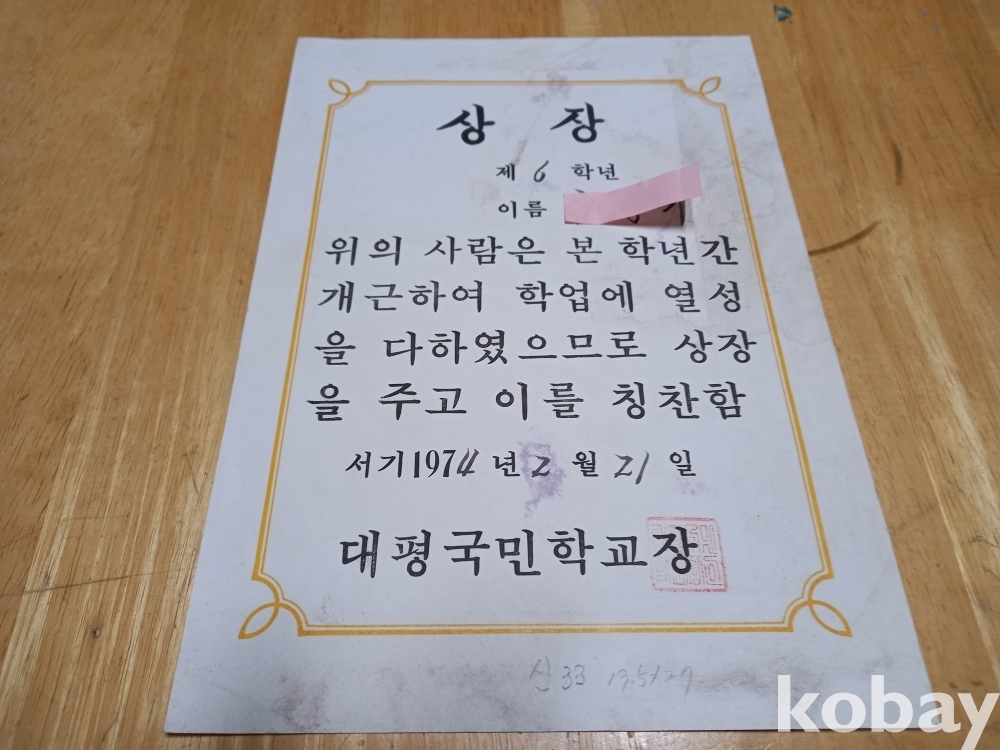 상 장
제 6 학년
이름
위의 사람은 본 학년간
개근하여 학업에 열성
을 다하였으므로 상장
을 주고 이를 칭찬함
서기1974년 2월 21일
대평국민학교장
신 33
kobay